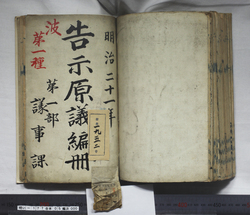 明治二十一年
告示原議編冊
第一部
議事課
波
第一種